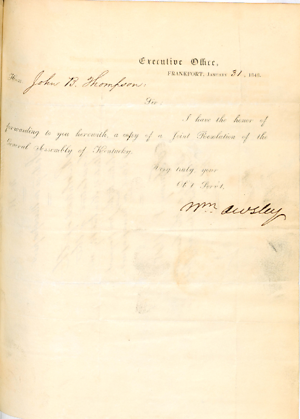 Executive Office,
FRANKFORT, January 31, 1848.
Hon. John B. Thompson.
Sir:
I have the honor of
forwarding to you herewith, a copy of a Joint Resolution of the
General Assembly of Kentucky.
Very truly, your
Ob't Servt,
Wm Owsley